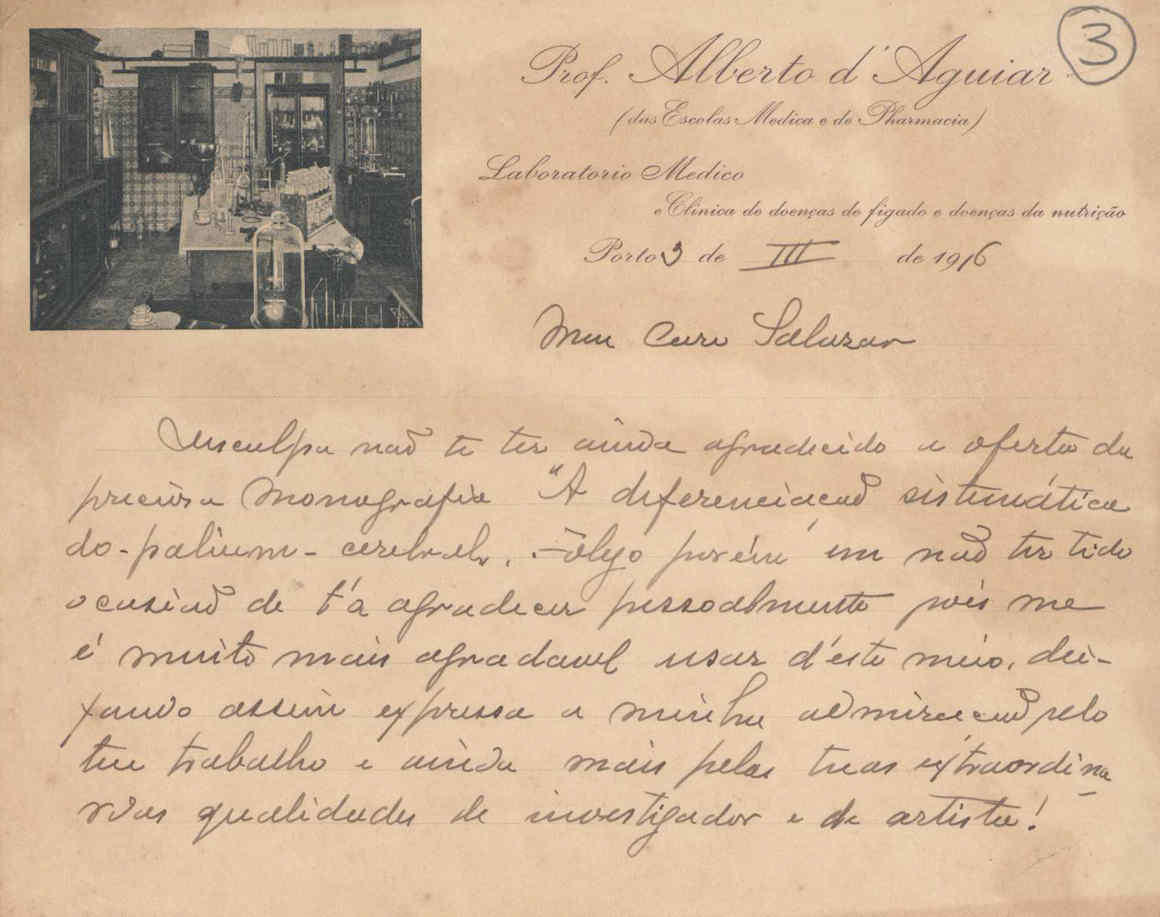 3
Prof. Alberto d'Aguiar
(das Escolas Medica e de Pharmacia)
Laboratorio Medico
e Clinica de doenças de figado e doenças da nutrição
Porto 3 de III de 1916
Meu Caro Salazar
Desculpa não te ter ainda agradecido a oferta da
preciosa monografia "A diferenciação sistemática
do-palium-cerebral. Folgo porém em não ter tido
ocasião de t'a agradecer pessoalmente pois me
é muito mais agradavel usar d'este meio, dei-
xando assim expressa a minha admiração pelo
teu trabalho e ainda mais pelas tuas extraordina
rias qualidades de investigador e de artista!